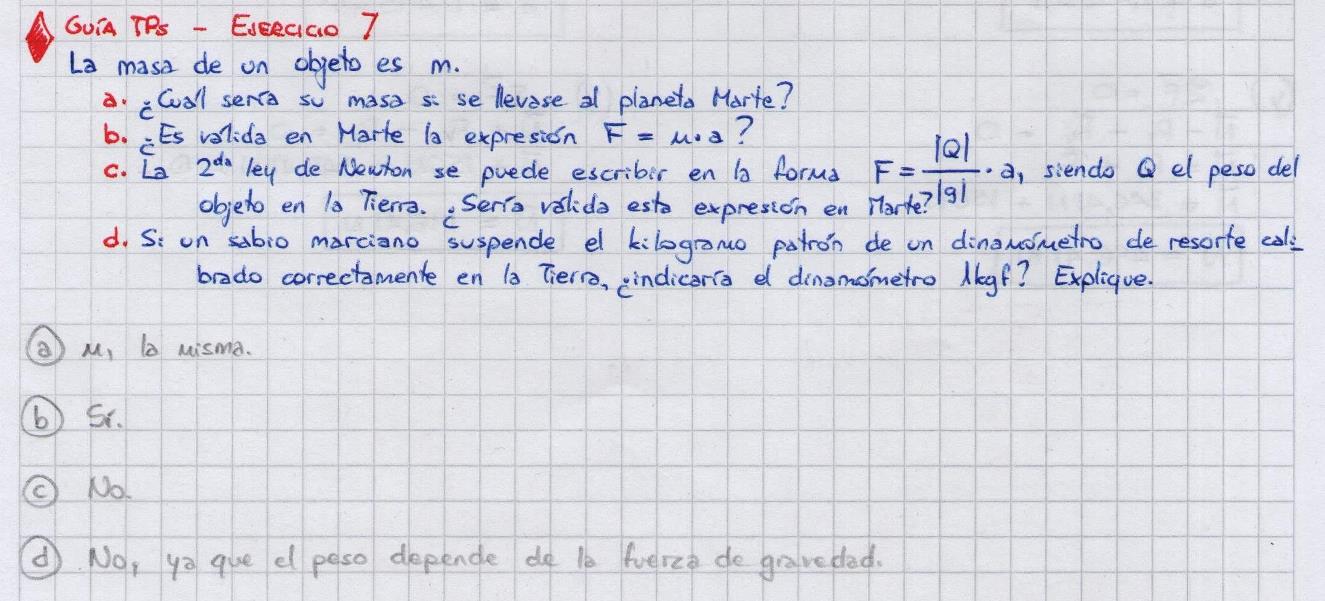 GUÍA TPs - EJERCICIO 7
La masa de un objeto es m.
a. ¿Cuál sería su masa si se llevase al planeta Marte?
b. ¿Es válida en Marte la expresión F = m.a?
c. La 2da ley de Newton se puede escribir en la forma F = |Q|/|g| . a, siendo Q el peso del
objeto en la Tierra. ¿Sería válida esta expresión en Marte?
d. Si un sabio marciano suspende el kilogramo patrón de un dinamómetro de resorte cali
brado correctamente en la Tierra, ¿indicaría el dinamómetro 1kgf? Explique.
a) m, la misma.
b) Sí.
c) No.
d) No, ya que el peso depende de la fuerza de gravedad.